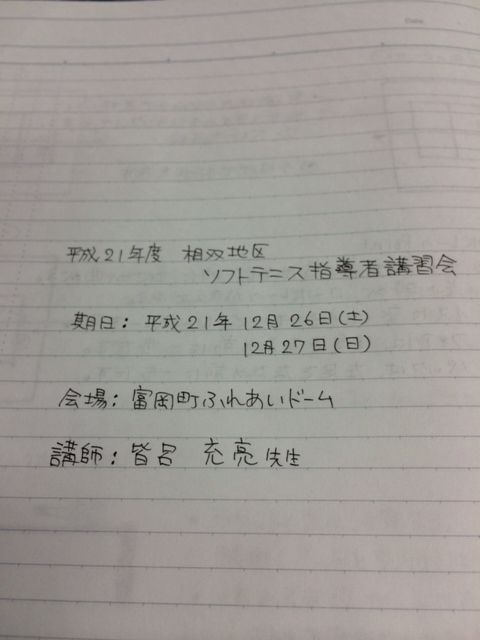 平成21年度 相双地区
ソフトテニス指導者講習会
期日: 平成21年 12月26日(土)
12月27日(日)
会場: 富岡町ふれあいドーム
講師: 皆呂 充亮 先生